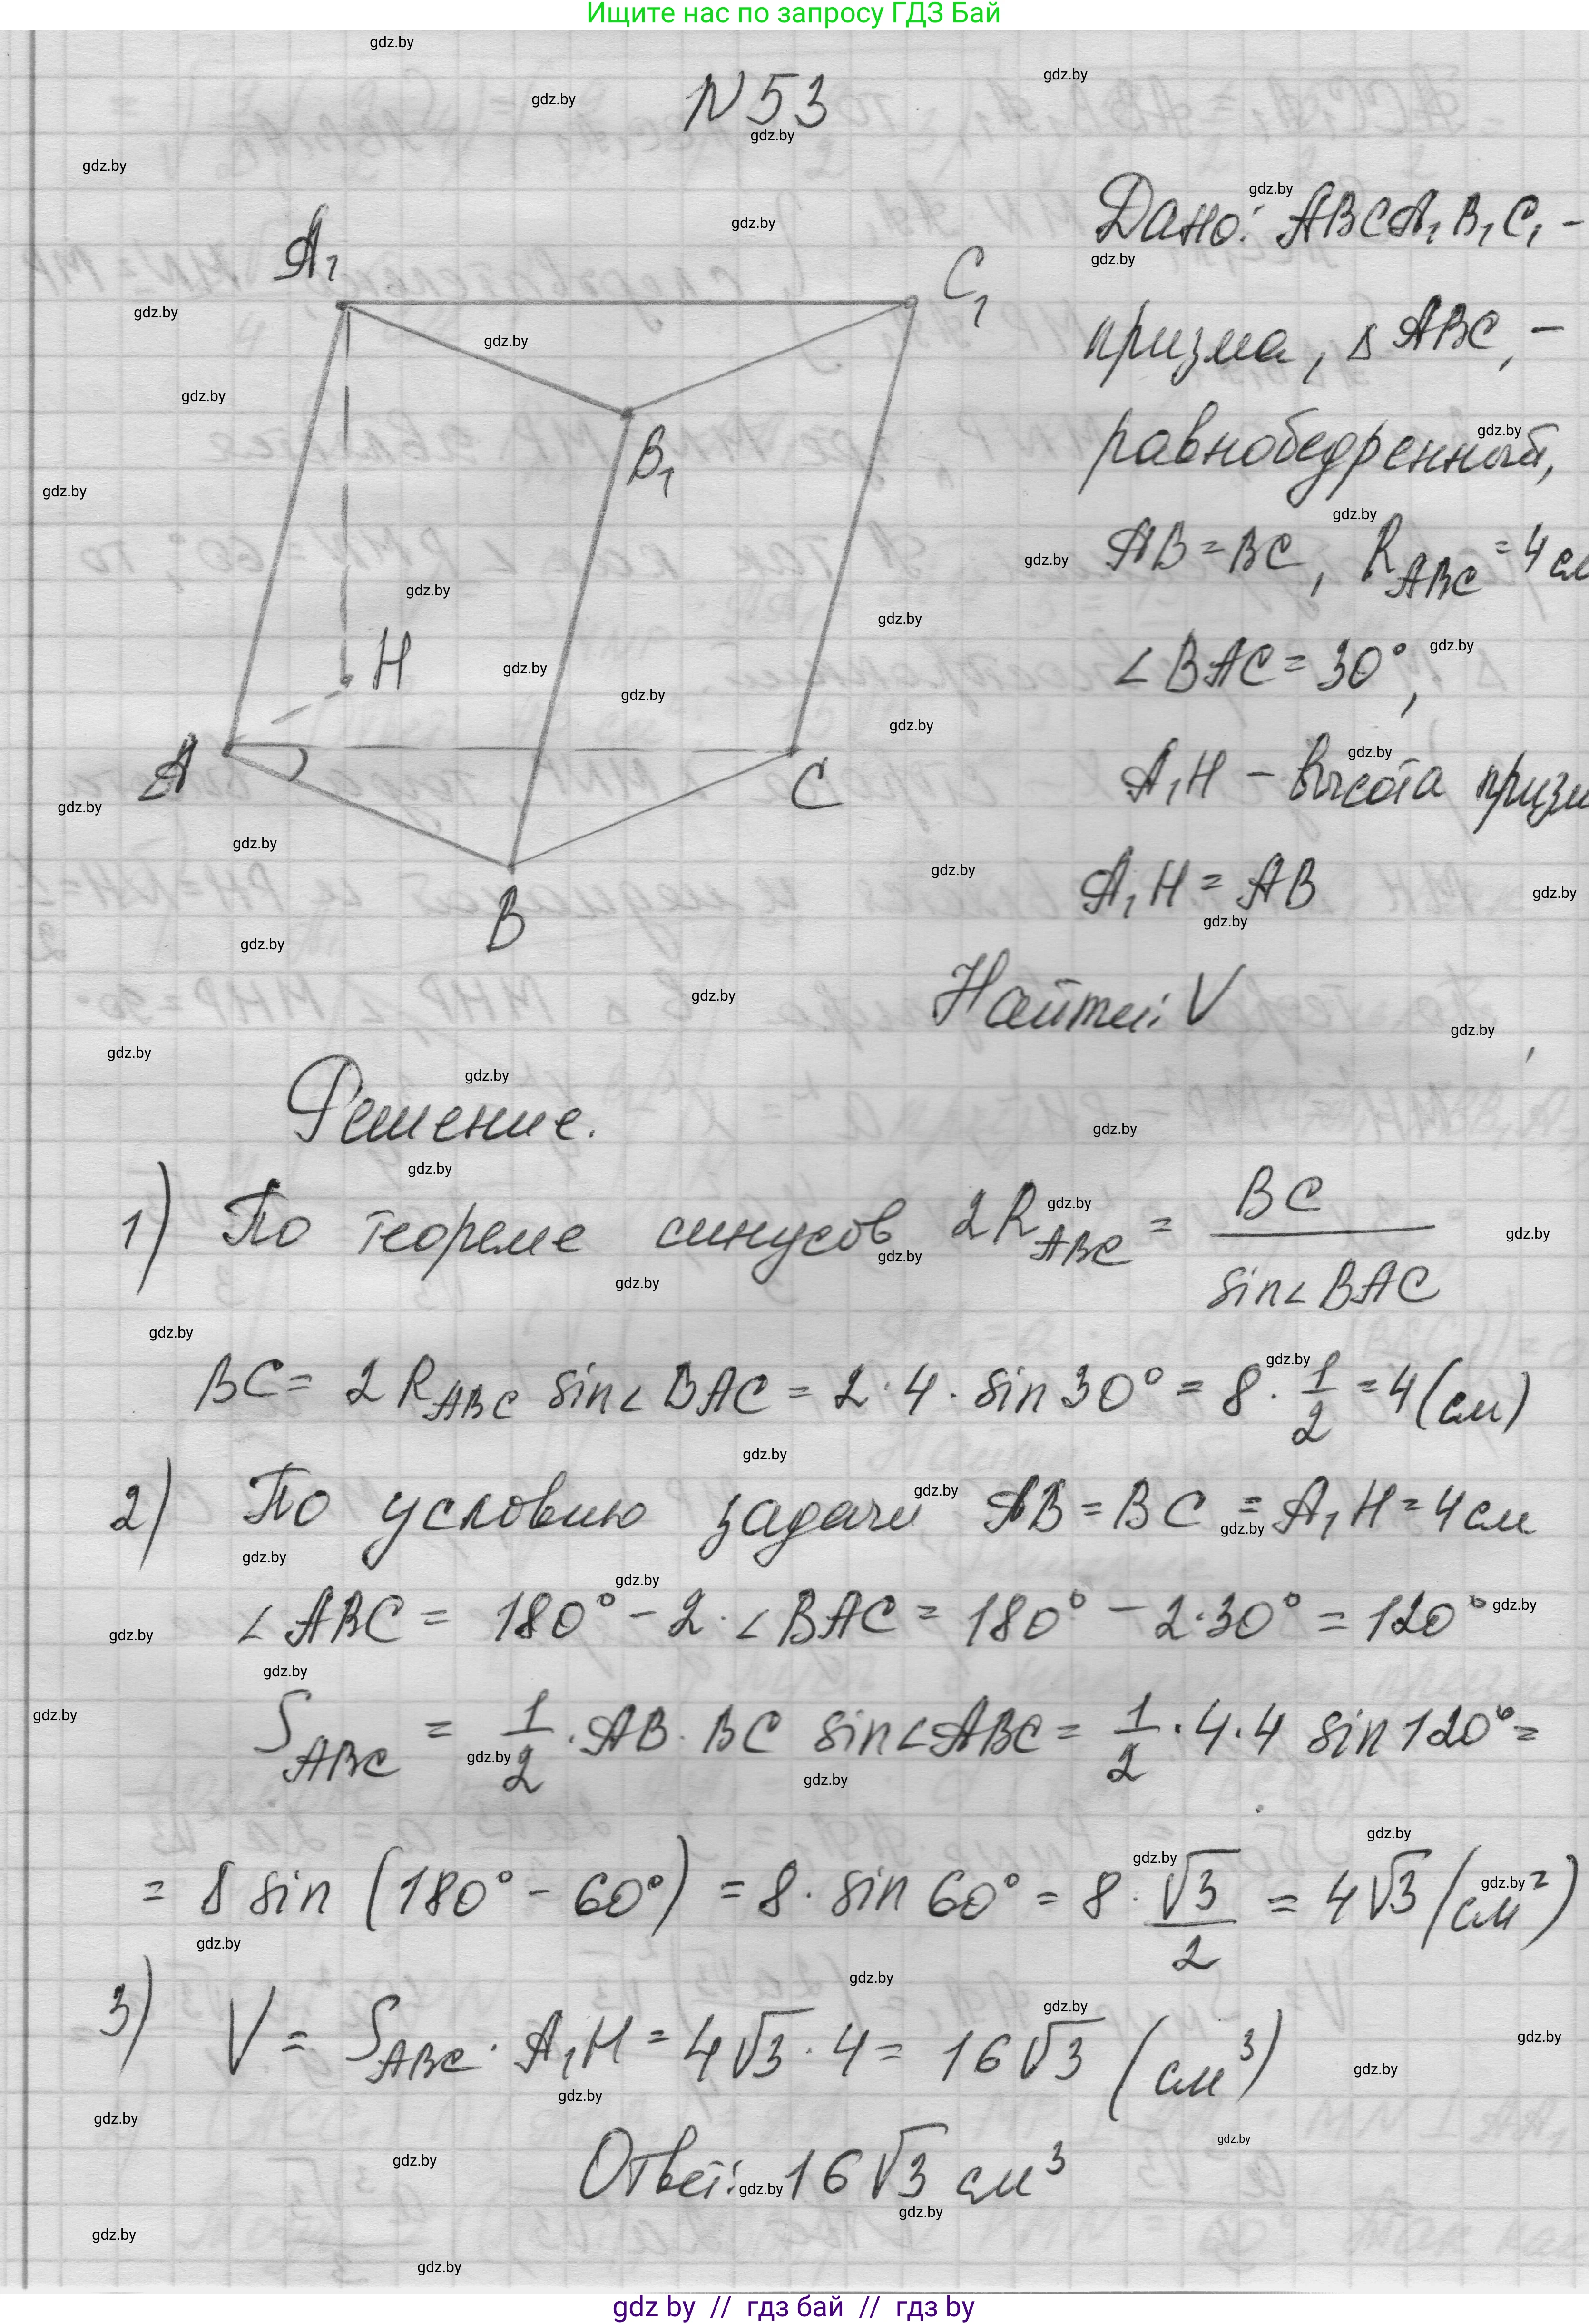 Ищите нас по запросу ГДЗ Бай
N 53
Дано: ABCA₁B₁C₁ –
призма, Δ ABC, –
равнобедренный,
AB = BC, R_ABC = 4 см
∠ BAC = 30°,
A₁H – высота призм
A₁H = AB
Найти: V
A₁
C₁
B₁
H
A
C
B
Решение.
1) По теореме синусов 2R_ABC = BC / sin∠BAC
BC = 2 R_ABC sin∠BAC = 2 · 4 · sin 30° = 8 · 1/2 = 4 (см)
2) По условию задачи AB = BC = A₁H = 4 см
∠ ABC = 180° – 2 · ∠ BAC = 180° – 2 · 30° = 120°
S_ABC = 1/2 · AB · BC sin∠ABC = 1/2 · 4 · 4 sin 120° =
= 8 sin (180° – 60°) = 8 · sin 60° = 8 · √3/2 = 4√3 (см²)
3) V = S_ABC · A₁H = 4√3 · 4 = 16√3 (см³)
Ответ: 16√3 см³
gdz by // гдз бай // гдз by